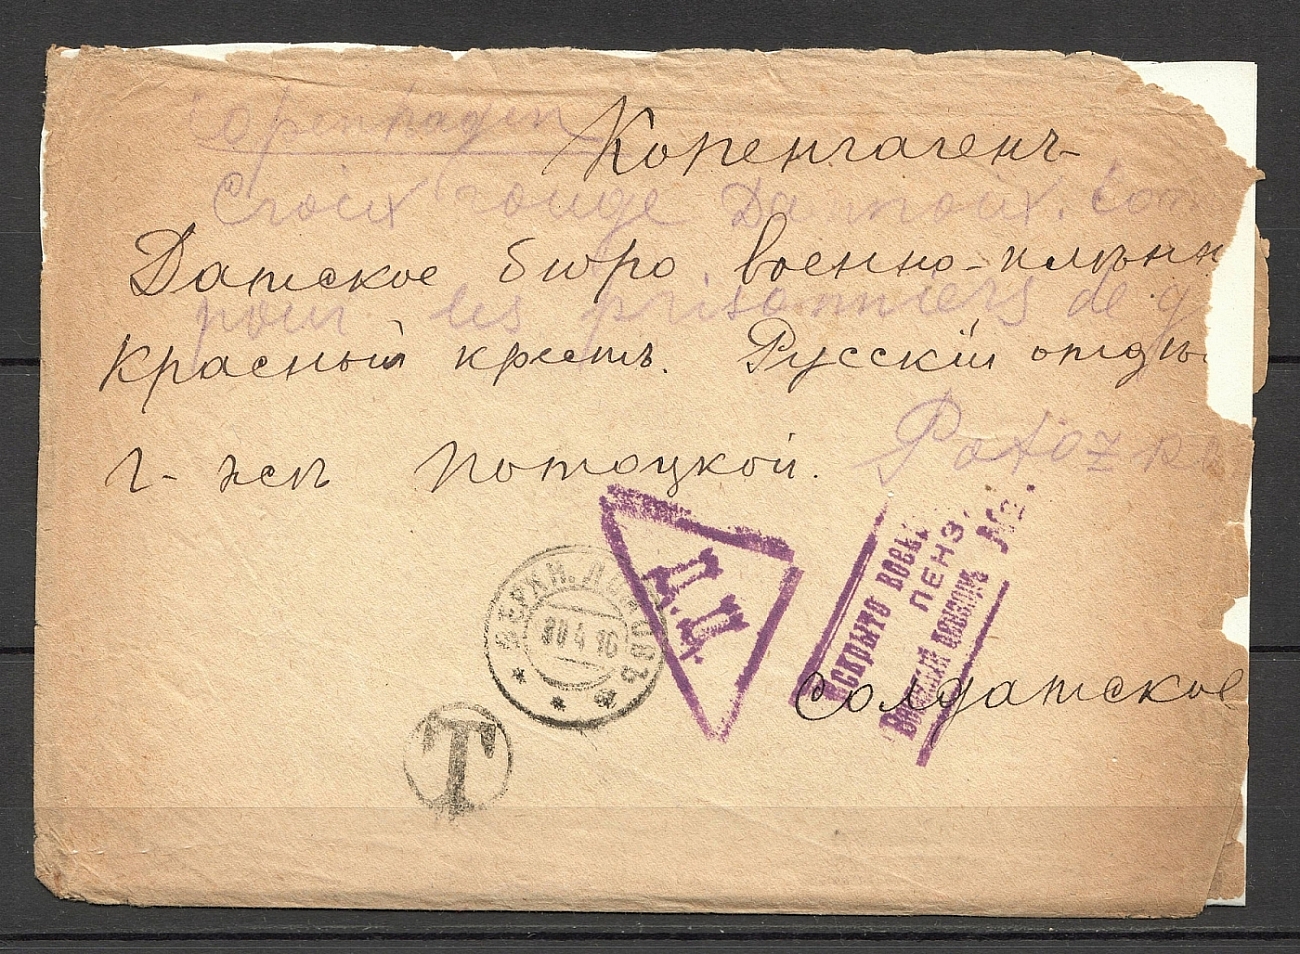 Copenhagen
Копенгагенъ
Croix rouge Dannoux. Com
Датское бюро военно-плѣнн
pour les prisonniers de g
Красный крестъ. Русскій отдѣ
г-жѣ Потоцкой.
ВЕРХН.
30 4 16
Т
Ц.
Вскрыто воен
ПЕНЗ
Военный цензоръ №
солдатское